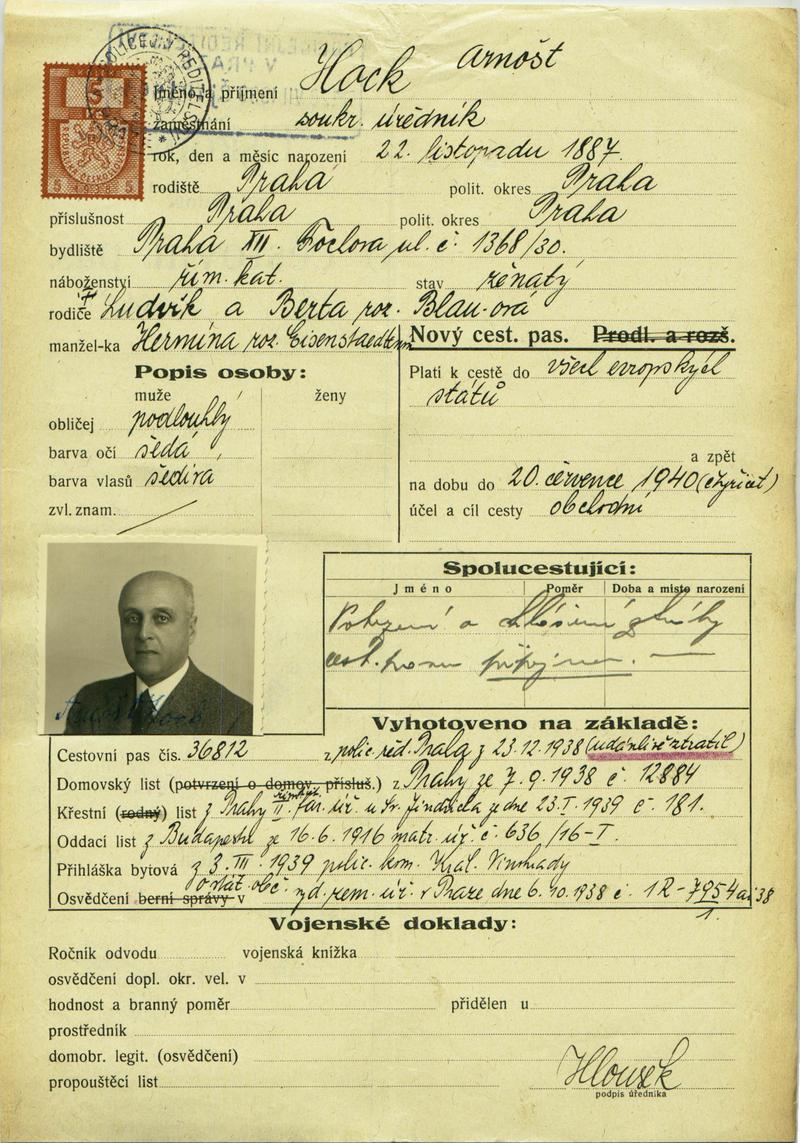 POLICEJNÍ ŘEDITELSTVÍ
V PRAZE
5
REPUBLIKA ČESKOSLOVENSKÁ
5 1938 5
Jméno a příjmení Hock Arnošt
zaměstnání soukr. úředník
rok, den a měsíc narození 22. listopadu 1887.
rodiště Praha polit. okres Praha
příslušnost Praha polit. okres Praha
bydliště Praha XII. Fochova ul. č. 1368/30.
náboženství řím. kat. stav ženatý
rodiče Ludvík a Berta roz. Blau-ová
manžel-ka Hermína roz. Eisenstaedter
Nový cest. pas. Prodl. a rozš.
Popis osoby:
muže ženy
obličej podlouhlý
barva očí šedá
barva vlasů šedivá
zvl. znam.
Platí k cestě do všech evropských
států
a zpět
na dobu do 20. července 1940 (čtyřicet)
účel a cíl cesty obchodní
Spolucestující:
Jméno Poměr Doba a místo narození
Potvrzení o hlášení ztráty
cest. pasu připojeno.
Vyhotoveno na základě:
Cestovní pas čís. 36812 z polic. řed. Praha z 23.12.1938 (údánlivě ztratil)
Domovský list (potvrzení o domov. přísluš.) z Prahy ze 7.9.1938 č. 12884
Křestní (rodný) list z Prahy II. řím. kat. far. úř. u Sv. Jindřicha ze dne 23.I.1939 č. 181.
Oddací list z Budapešti ze 16.6.1916 matr. úř. č. 636/16-I.
Přihláška bytová z 3.III.1939 polic. kom. Král. Vinohrady
Osvědčení berní správy v o stát. obč. vyd. zem. úř. v Praze dne 6.10.1938 č. 1R-7954 ai 38
1.
Vojenské doklady:
Ročník odvodu vojenská knížka
osvědčení dopl. okr. vel. v
hodnost a branný poměr přidělen u
prostředník
domobr. legit. (osvědčení)
propouštěcí list
Hloušek
podpis úředníka